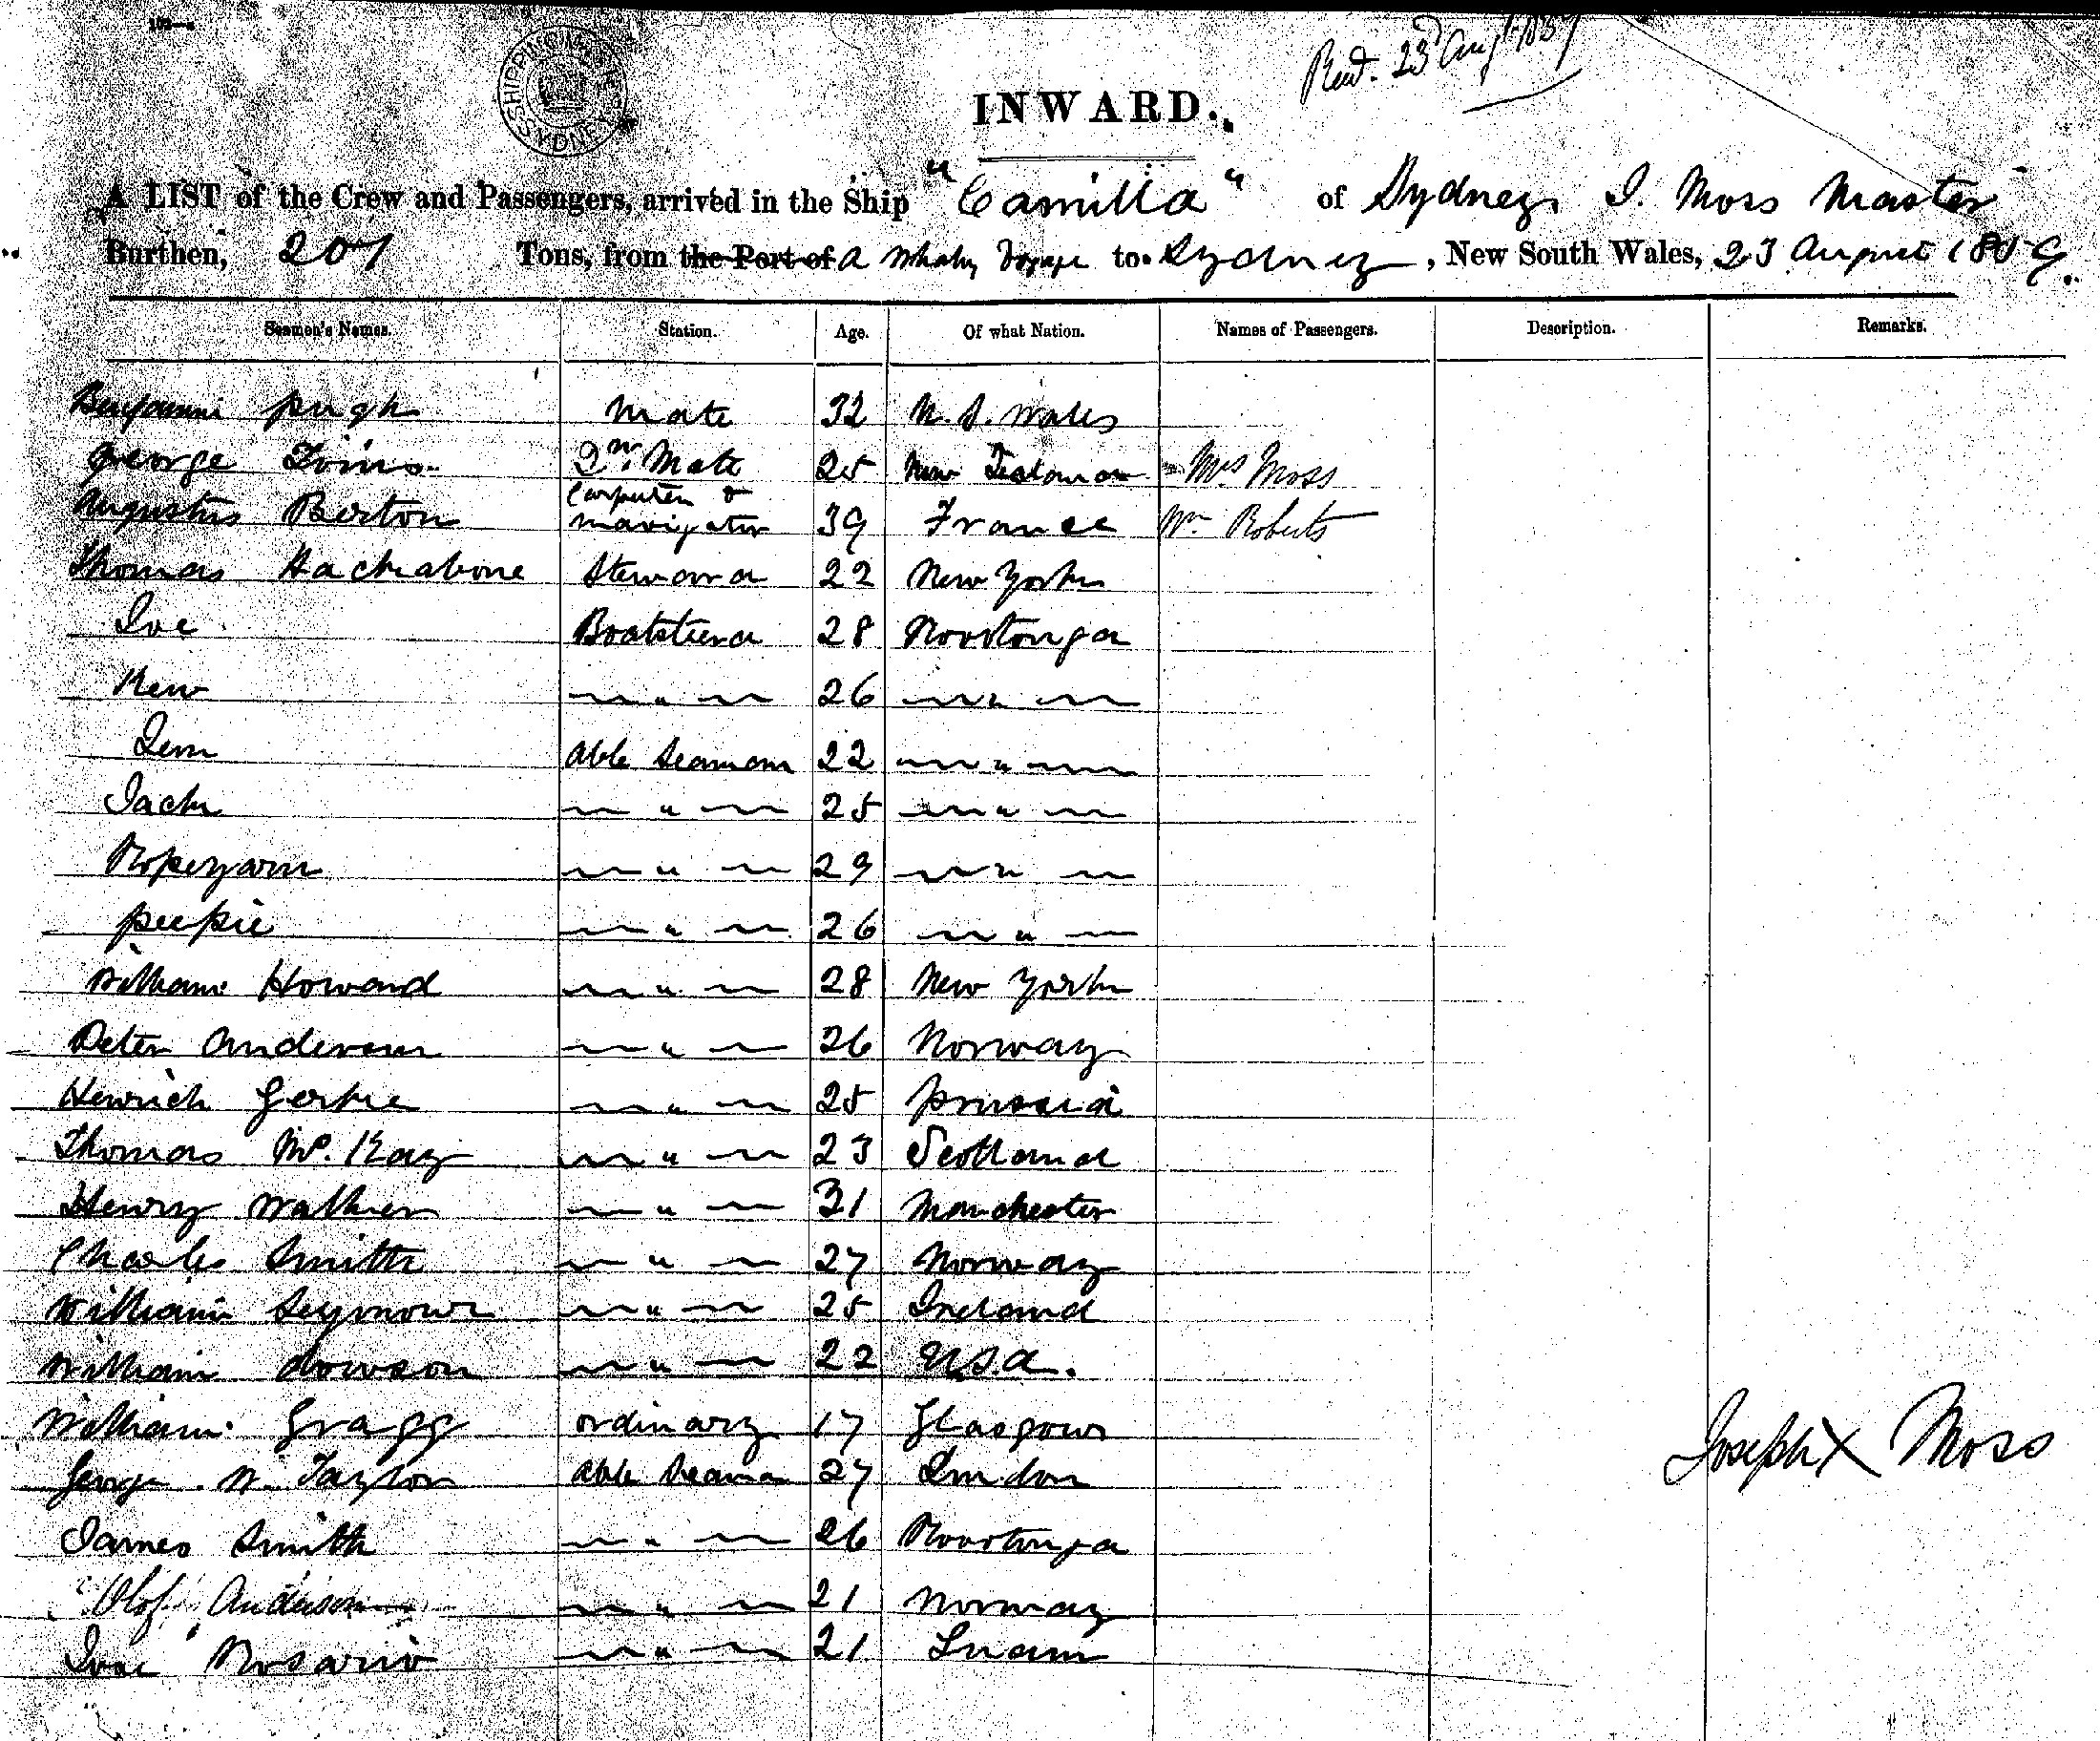 SHIPPING MASTERS SYDNEY
Recd. 23d Augt 1859
INWARD.
A LIST of the Crew and Passengers, arrived in the Ship "Camilla" of Sydney I. Moss Master
Burthen, 207 Tons, from the Port of a Whaling Voyage to Sydney, New South Wales, 23 August 1859.
Seamen's Names. Station. Age. Of what Nation. Names of Passengers. Description. Remarks.
Benjamin Pugh Mate 32 N. S. Wales
George 2nd Mate 25 New Mrs Moss
Augustus Berton Carpenter & navigator 39 France Wm Roberts
Thomas Steward 22 New York
Joe Boatsteerer 28 Roratonga
Kew — " — 26 — " —
Jem Able Seaman 22 — " —
Jack — " — 25 — " —
Ropeyarn — " — 29 — " —
Peepie — " — 26 — " —
William Howard — " — 28 New York
Peter Anderson — " — 26 Norway
Henrich — " — 25 Prussia
Thomas Mc. Kay — " — 23 Scotland
Henry Walker — " — 31 Manchester
Charles Smith — " — 27 Norway
William Seymour — " — 25 Ireland
William Dowson — " — 22 U.S.A.
William Gragg ordinary 17 Glasgow
George W. Taylor Able Seaman 27 London
Joseph X Moss
James Smith — " — 26 Roratonga
Olof Anderson — " — 21 Norway
Jose Rosario — " — 21